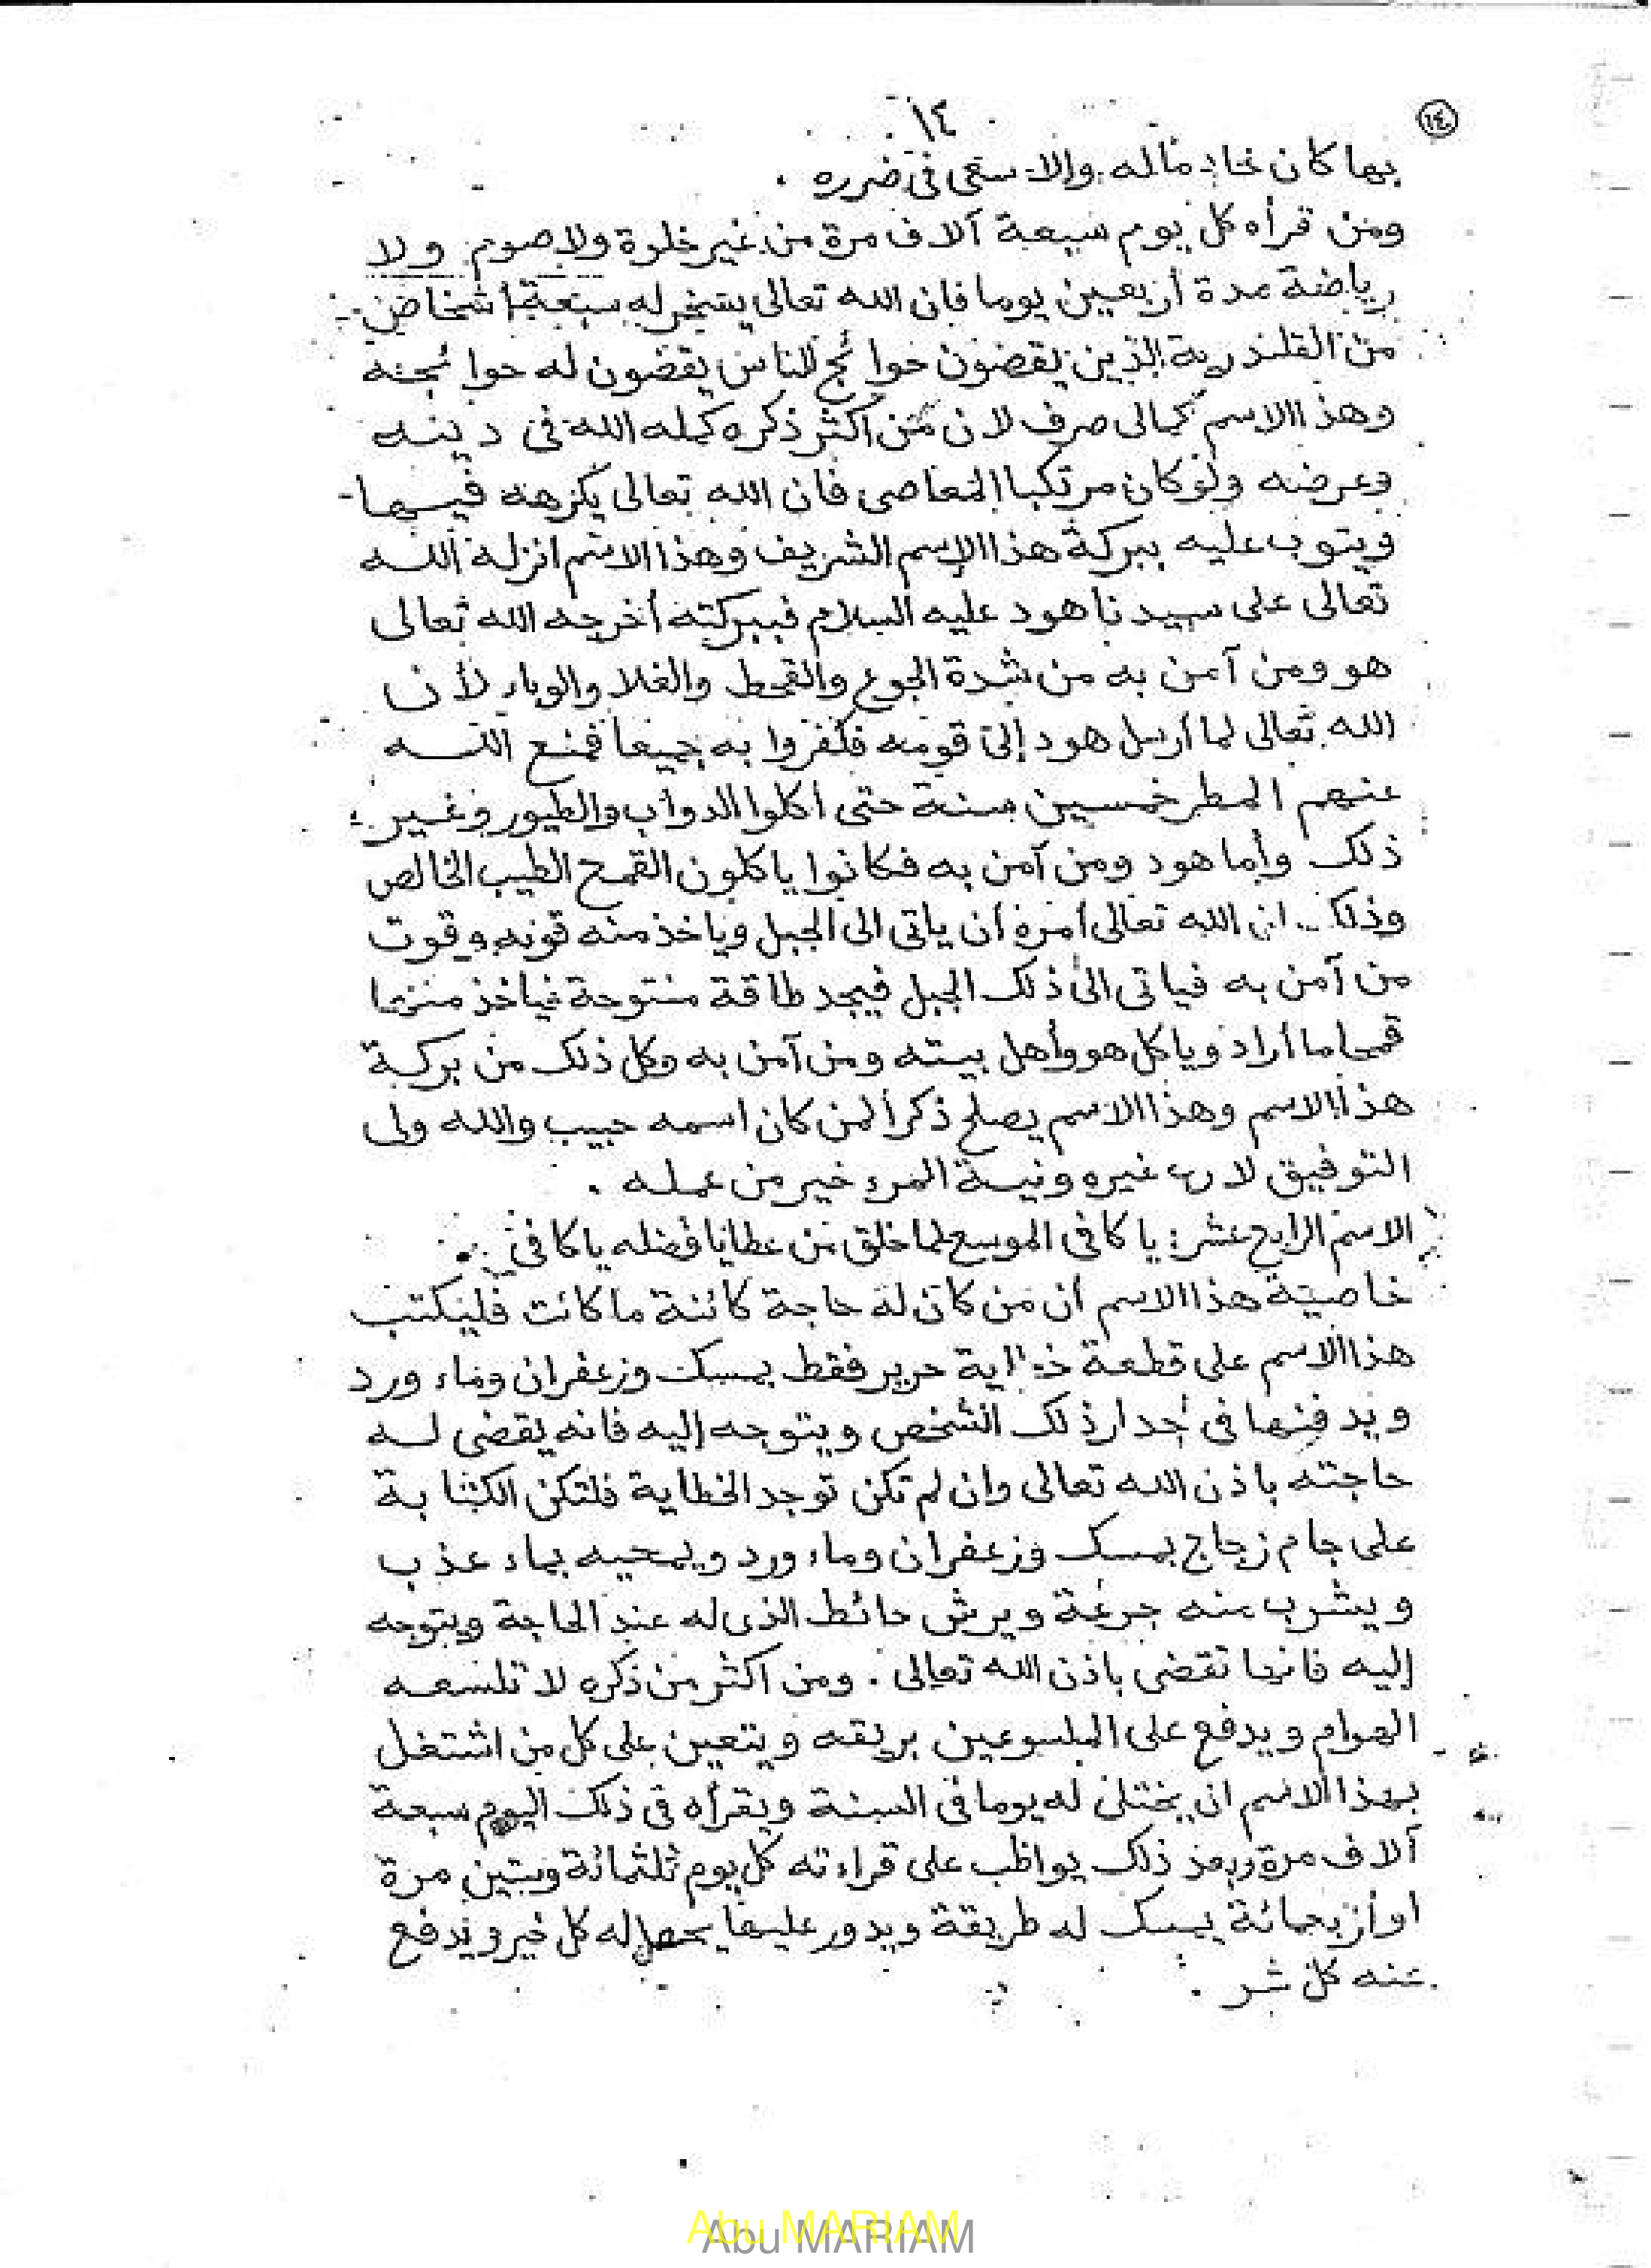 ١٤
١٤
بها كان خادماله والا سعى فى ضرره .
ومن قرأه كل يوم سبعة آلاف مرة من غير خلوة ولا صوم ولا
رياضة مدة أربعين يوما فان الله تعالى يسخر له سبعة أشخاص
من القلندرية الذين يقضون حوائج للناس يقضون له حوائجه
وهذا الاسم كمالى صرف لان من أكثر ذكره كمله الله فى دينه
وعرضه ولوكان مرتكبا المعاصى فان الله تعالى يكرهه فيها
ويتوب عليه ببركة هذا الإسم الشريف وهذا الاسم انزله الله
تعالى على سيدنا هود عليه السلام فببركته أخرجه الله تعالى
هو ومن آمن به من شدة الجوع والقحط والغلا والوباء لأن
الله تعالى لما أرسل هود إلى قومه فكفروا به جميعا فمنع الله
عنهم المطر خمسين سنة حتى أكلوا الدواب والطيور وغير
ذلك وأما هود ومن آمن به فكانوا ياكلون القمح الطيب الخالص
وذلك ان الله تعالى أمره أن ياتى الى الجبل وياخذ منه قوته وقوت
من آمن به فياتى الى ذلك الجبل فيجد طاقة مفتوحة فياخذ منها
قمحا ما أراد وياكل هو وأهل بيته ومن آمن به وكل ذلك من بركة
هذا الاسم وهذا الاسم يصلح ذكرا لمن كان اسمه حبيب والله ولى
التوفيق لا رب غيره ونية المرء خير من عمله .
الاسم الرابع عشر : يا كافى الموسع لما خلق من عطايا فضله يا كافى .
خاصية هذا الاسم أن من كان له حاجة كائنة ما كانت فليكتب
هذا الاسم على قطعة حرير فقط بمسك وزعفران وماء ورد
ويدفنها فى جدار ذلك الشخص ويتوجه إليه فانه يقضى له
حاجته باذن الله تعالى وان لم تكن توجد الخطاية فلتكن الكتابة
على جام زجاج بمسك وزعفران وماء ورد ويمحيه بماء عذب
ويشرب منه جرعة ويرش حائط الذى له عند الحاجة ويتوجه
إليه فانها تقضى باذن الله تعالى . ومن اكثر من ذكره لا تلسعه
الهوام ويدفع على الملسوعين بريقه ويتعين على كل من اشتغل
بهذا الاسم ان يختلى له يوما فى السنة ويقرأه فى ذلك اليوم سبعة
آلاف مرة وبعد ذلك يواظب على قراءته كل يوم ثلثمائة وستين مرة
او أربعمائة يمسك له طريقة ويدور عليها يحصل له كل خير ويدفع
عنه كل شر .
Abu MARIAM